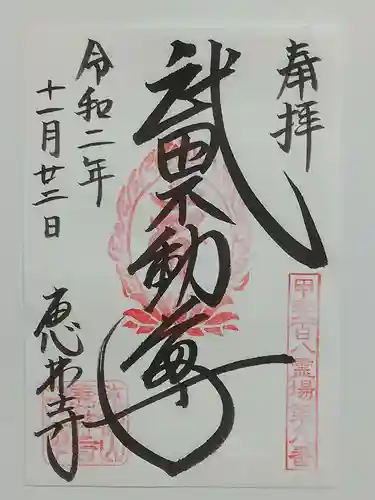 奉拝
甲斐百八霊場第八番
武田不動尊
令和二年
十一月廿二日
恵林寺